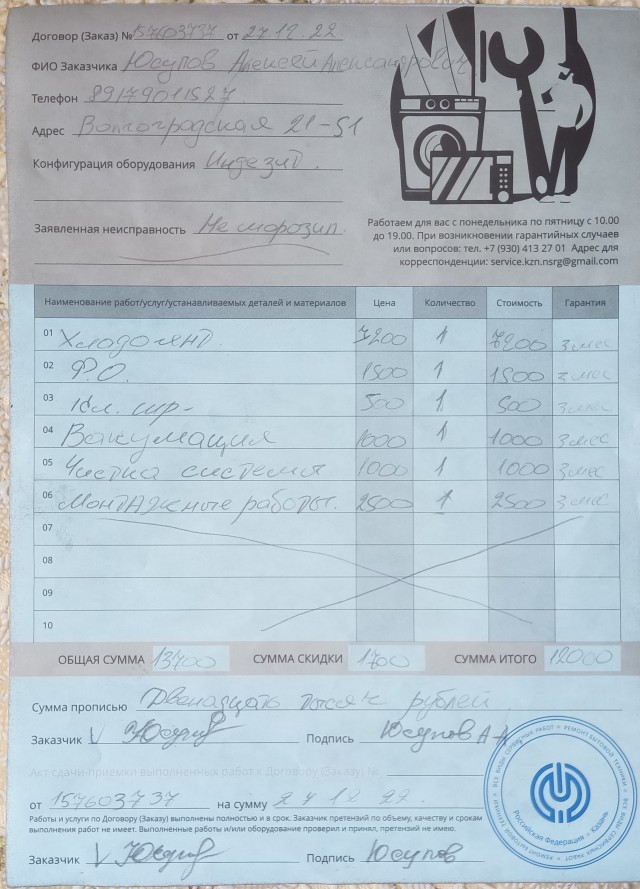 Договор (Заказ) № 157603737 от 27.12.22
ФИО Заказчика Юсупов Алексей Александрович
Телефон 89179011527
Адрес Волгоградская 21-51
Конфигурация оборудования Индезит.
Заявленная неисправность Не морозил.
Работаем для вас с понедельника по пятницу с 10.00
до 19.00. При возникновении гарантийных случаев
или вопросов: тел. +7 (930) 413 27 01 Адрес для
корреспонденции: service.kzn.nsrg@gmail.com
Наименование работ/услуг/устанавливаемых деталей и материалов Цена Количество Стоимость Гарантия
01 Хлодогент. 7200 1 7200 3 мес
02 Ф.О. 1500 1 1500 3 мес
03 Кл. шр- 500 1 500 3 мес
04 Вакумация 1000 1 1000 3 мес
05 Чистка системы 1000 1 1000 3 мес
06 Монтажные работы. 2500 1 2500 3 мес
07
08
09
10
ОБЩАЯ СУММА 13700 СУММА СКИДКИ 1700 СУММА ИТОГО 12000
Сумма прописью Двенадцать тысяч рублей
Заказчик V Юсупов Подпись Юсупов А А
Акт сдачи-приемки выполненных работ к Договору (Заказу) №
от 157603737 на сумму 27.12.22.
Работы и услуги по Договору (Заказу) выполнены полностью и в срок. Заказчик претензий по объему, качеству и срокам
выполнения работ не имеет. Выполненные работы и/или оборудование проверил и принял, претензий не имею.
Заказчик V Юсупов Подпись Юсупов
ВСЕ ВИДЫ СЕРВИСНЫХ РАБОТ • РЕМОНТ БЫТОВОЙ ТЕХНИКИ •
Российская Федерация • Казань